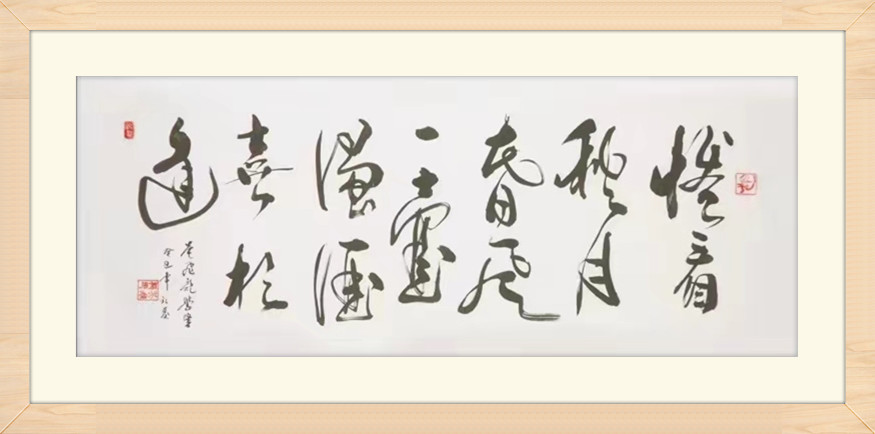 惯看
秋月
春风
一壶
浊酒
喜相
逢
癸巳年